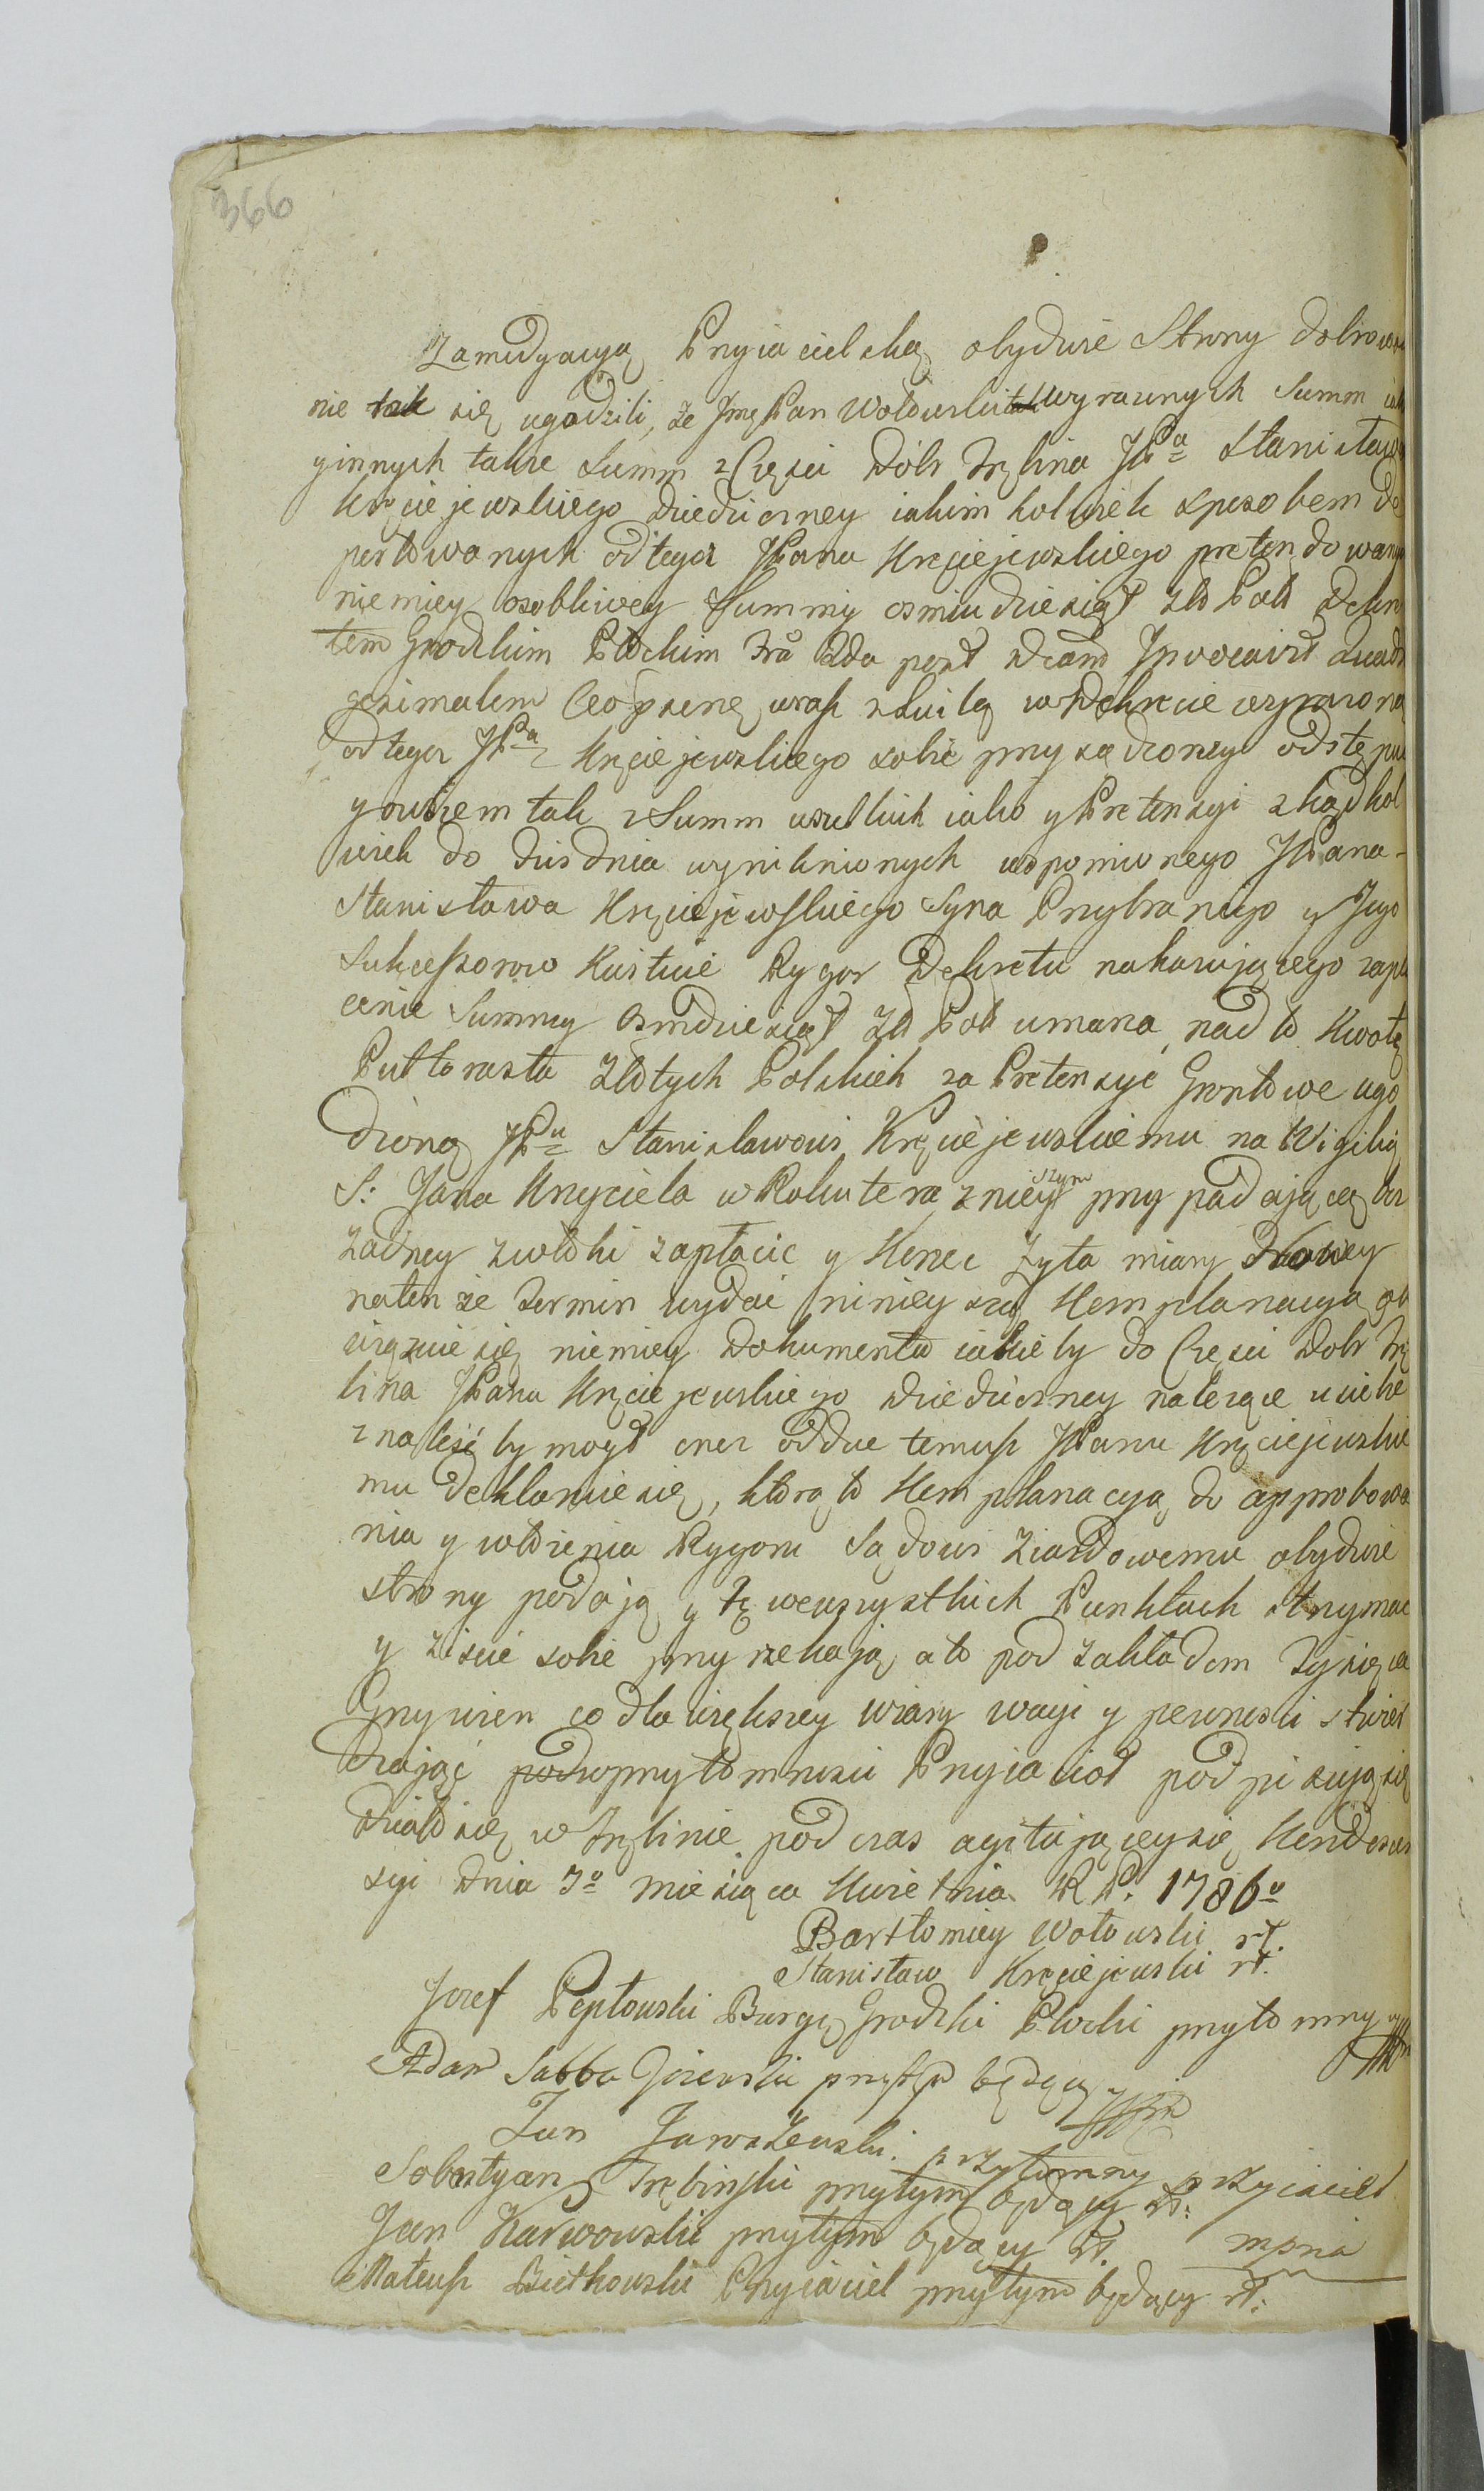 366
Zamedyacyą Przyiacielską obydwie Strony dobrowol
nie tak się ugodzili, że Jmę Pan Wołowski tak wyrawnych Summ iak
y innych także Summ z Części Dóbr Trębina JPa Stanisława
Kręciejewskiego Dziedziczney iakimkolwiek sposobem de
portowanych od tegoż JPana Kręciejewskiego pretendowany
niemiey osobliwey Summy osmiudziesiąt Zło Pols Dekre
tem Grodzkim Płockim Fra 2da post Dcam Invocavit Quadr
gesimalem wraz z Luitą w Dekrecie wyrażoną
od tegoż JPa Kręciejewskiego sobie przysądzoney odstępuie
y owszem tak z Summ wszelkich iako y Pretensyi zkądkol
wiek do dziś dnia wyniknionych wspomionego JPana
Stanisława Kręciejewskiego Syna Przybranego y Jego
Sukcessorow Kwituie Rygor Dekretu nakazuiącego zapła
cenie Summy Osmdziesiąt Zł Pol umarza, nadto Kwotę
Pułtorasta Złotych Polskich za Pretensye Grontowe ugo
dzioną JPu Stanisławowi Kręciejewskiemu na Wigilią
S: Jana Krzyciela w Roku teraznieyszym przypadaiącą bez
żadney zwłoki zapłacic y Korzec żyta miary Nowey
natenże Termin wydać ninieyszą Komplanacyą ob
więzuie się niemiey Dokumenta iakieby do Części Dobr Trę
bina JPana Kręciejewskiego Dziedziczney należące u siebie
znaleść by mogł onez oddać temuż JPanu Kręciejewskie
mu Deklaruie się, ktorą to Komplanacyą do approbowa
nia y włożenia Rygoru Sądowi Ziazdowemu obydwie
strony podają y tę we wszystkich Punktach strzymac
y ziscic sobie przyrzekają a to pod zakładem Tysiąca
Grzywien co dla większey wiary wagi y pewnosci stwier
dzając pod w przytomnosci Przyiacioł podpisują się
Działo się w Trębinie podczas agitującey się Kondesces
syi Dnia 7o Miesiąca Kwietnia R P. 1786o
Bartłomiey Wołowski rł.
Stanisław Kręciejewski rł.
Jozef Pepłowski Burgę Grodzki Płocki przytomny
Adam Sabba przytym będący
Jan przytomny przyiaciel
mpria
Sobestyan Trębinski przytym będący rł:
Jan Karwowski przytym będący rł.
Mateusz Bietkowski Przyiaciel przytym będący rł: